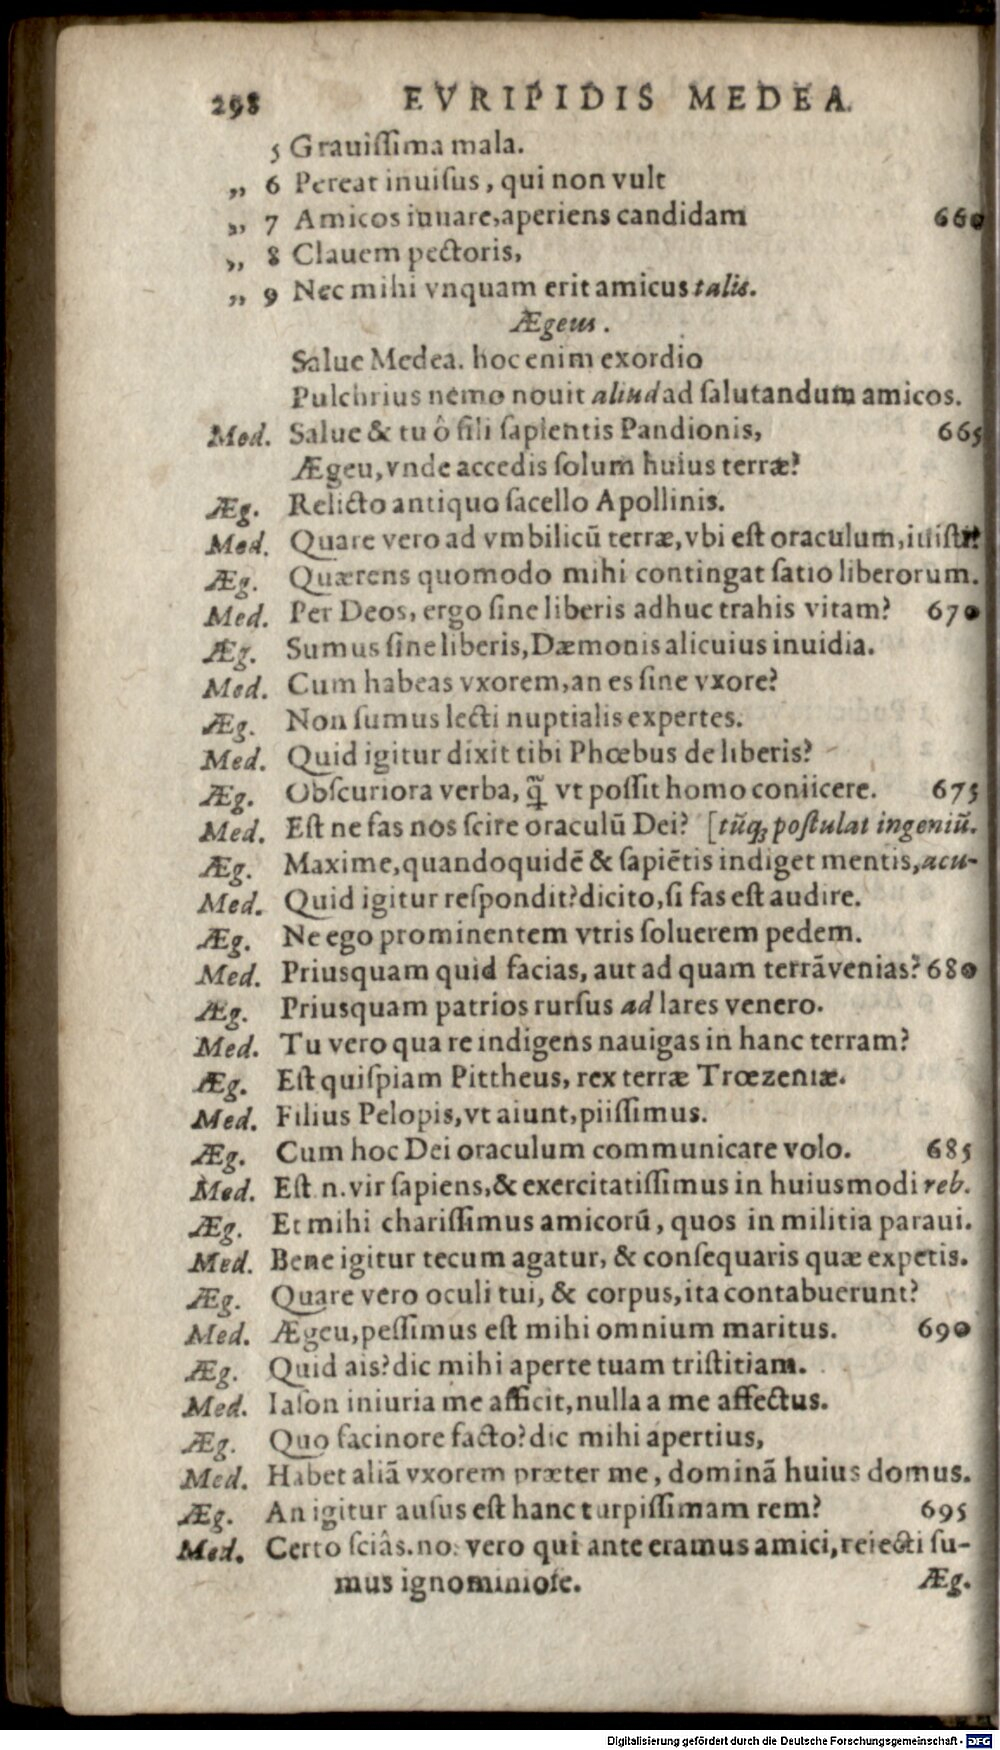 298 EVRIPIDIS MEDEA.
5 Grauiſſima mala.
„ 6 Pereat inuiſus, qui non vult
„ 7 Amicos iuuare, aperiens candidam 660
„ 8 Clauem pectoris,
„ 9 Nec mihi vnquam erit amicus talis.
Ægeus.
Salue Medea. hoc enim exordio
Pulchrius nemo nouit aliud ad ſalutandum amicos.
Med. Salue & tu ô fili ſapientis Pandionis, 665
Ægeu, vnde accedis ſolum huius terræ?
Æg. Relicto antiquo ſacello Apollinis.
Med. Quare vero ad vmbilicū terræ, vbi eſt oraculum, iuiſti?
Æg. Quærens quomodo mihi contingat ſatio liberorum.
Med. Per Deos, ergo ſine liberis adhuc trahis vitam? 670
Æg. Sumus ſine liberis, Dæmonis alicuius inuidia.
Med. Cum habeas vxorem, an es ſine vxore?
Æg. Non ſumus lecti nuptialis expertes.
Med. Quid igitur dixit tibi Phœbus de liberis?
Æg. Obſcuriora verba, q̃ vt poſſit homo coniicere. 675
Med. Eſt ne fas nos ſcire oraculū Dei? [tūq; poſtulat ingeniū.
Æg. Maxime, quandoquidē & ſapiētis indiget mentis, acu-
Med. Quid igitur reſpondit? dicito, ſi fas eſt audire.
Æg. Ne ego prominentem vtris ſoluerem pedem.
Med. Priusquam quid facias, aut ad quam terrā venias? 680
Æg. Priusquam patrios rurſus ad lares venero.
Med. Tu vero qua re indigens nauigas in hanc terram?
Æg. Eſt quiſpiam Pittheus, rex terræ Trœzeniæ.
Med. Filius Pelopis, vt aiunt, piiſſimus.
Æg. Cum hoc Dei oraculum communicare volo. 685
Med. Eſt n. vir ſapiens, & exercitatiſſimus in huiusmodi reb.
Æg. Et mihi chariſſimus amicorū, quos in militia paraui.
Med. Bene igitur tecum agatur, & conſequaris quæ expetis.
Æg. Quare vero oculi tui, & corpus, ita contabuerunt?
Med. Ægeu, peſſimus eſt mihi omnium maritus. 690
Æg. Quid ais? dic mihi aperte tuam triſtitiam.
Med. Iaſon iniuria me afficit, nulla a me affectus.
Æg. Quo facinore facto? dic mihi apertius,
Med. Habet aliā vxorem præter me, dominā huius domus.
Æg. An igitur auſus eſt hanc turpiſſimam rem? 695
Med. Certo ſciâs. nos vero qui ante eramus amici, reiecti ſu-
mus ignominioſe. Æg.
Digitalisierung gefördert durch die Deutsche Forschungsgemeinschaft - DFG